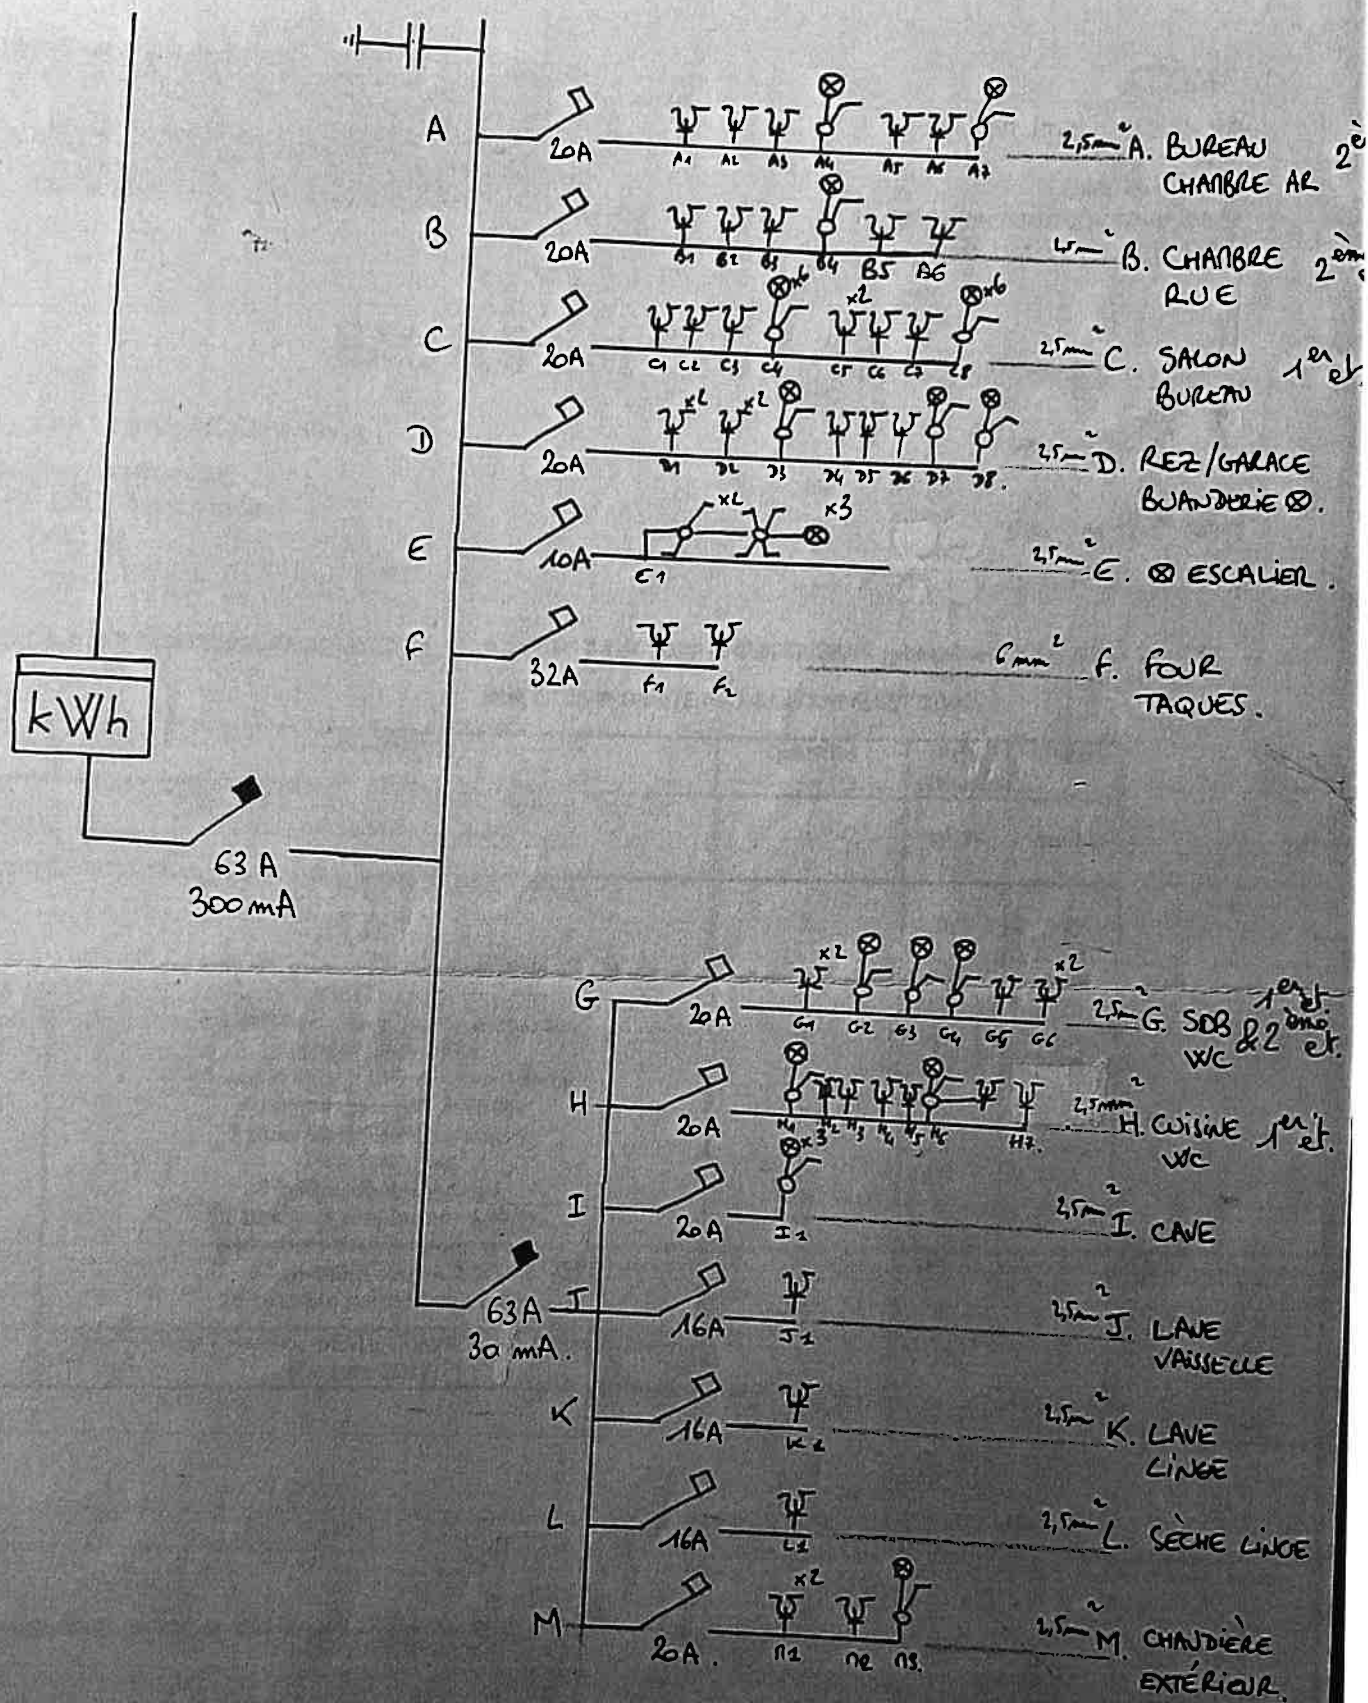 A
20A
A1 A2 A3 A4 A5 A6 A7
2,5mm² A. BUREAU 2è
CHAMBRE AR
B
20A
B1 B2 B3 B4 B5 A6
B. CHAMBRE 2èm
RUE
C
20A
x6
x2
x6
C1 C2 C3 C4 C5 C6 C7 C8
2,5mm² C. SALON 1er et.
BUREAU
D
20A
x2
x2
D1 D2 D3 D4 D5 D6 D7 D8.
2,5mm² D. REZ/GARAGE
BUANDERIE ⊗.
E
10A
x2
x3
E1
2,5mm² E. ⊗ ESCALIER.
F
32A
F1 F2
6mm² F. FOUR
TAQUES.
kWh
63 A
300 mA
G
20A
x2
x2
G1 G2 G3 G4 G5 G6
2,5mm² G. SDB 1er et
WC & 2ème et.
H
20A
H1 H2 H3 H4 H5 H6 H7.
2,5mm² H. CUISINE 1er ét.
WC
I
20A
x3
I1
2,5mm² I. CAVE
63A
30 mA.
J
16A
J1
2,5mm² J. LAVE
VAISSELLE
K
16A
K1
2,5mm² K. LAVE
LINGE
L
16A
L1
2,5mm² L. SÈCHE LINGE
M
20A.
x2
M1 M2 M3.
2,5mm² M. CHAUDIÈRE
EXTÉRIEUR.